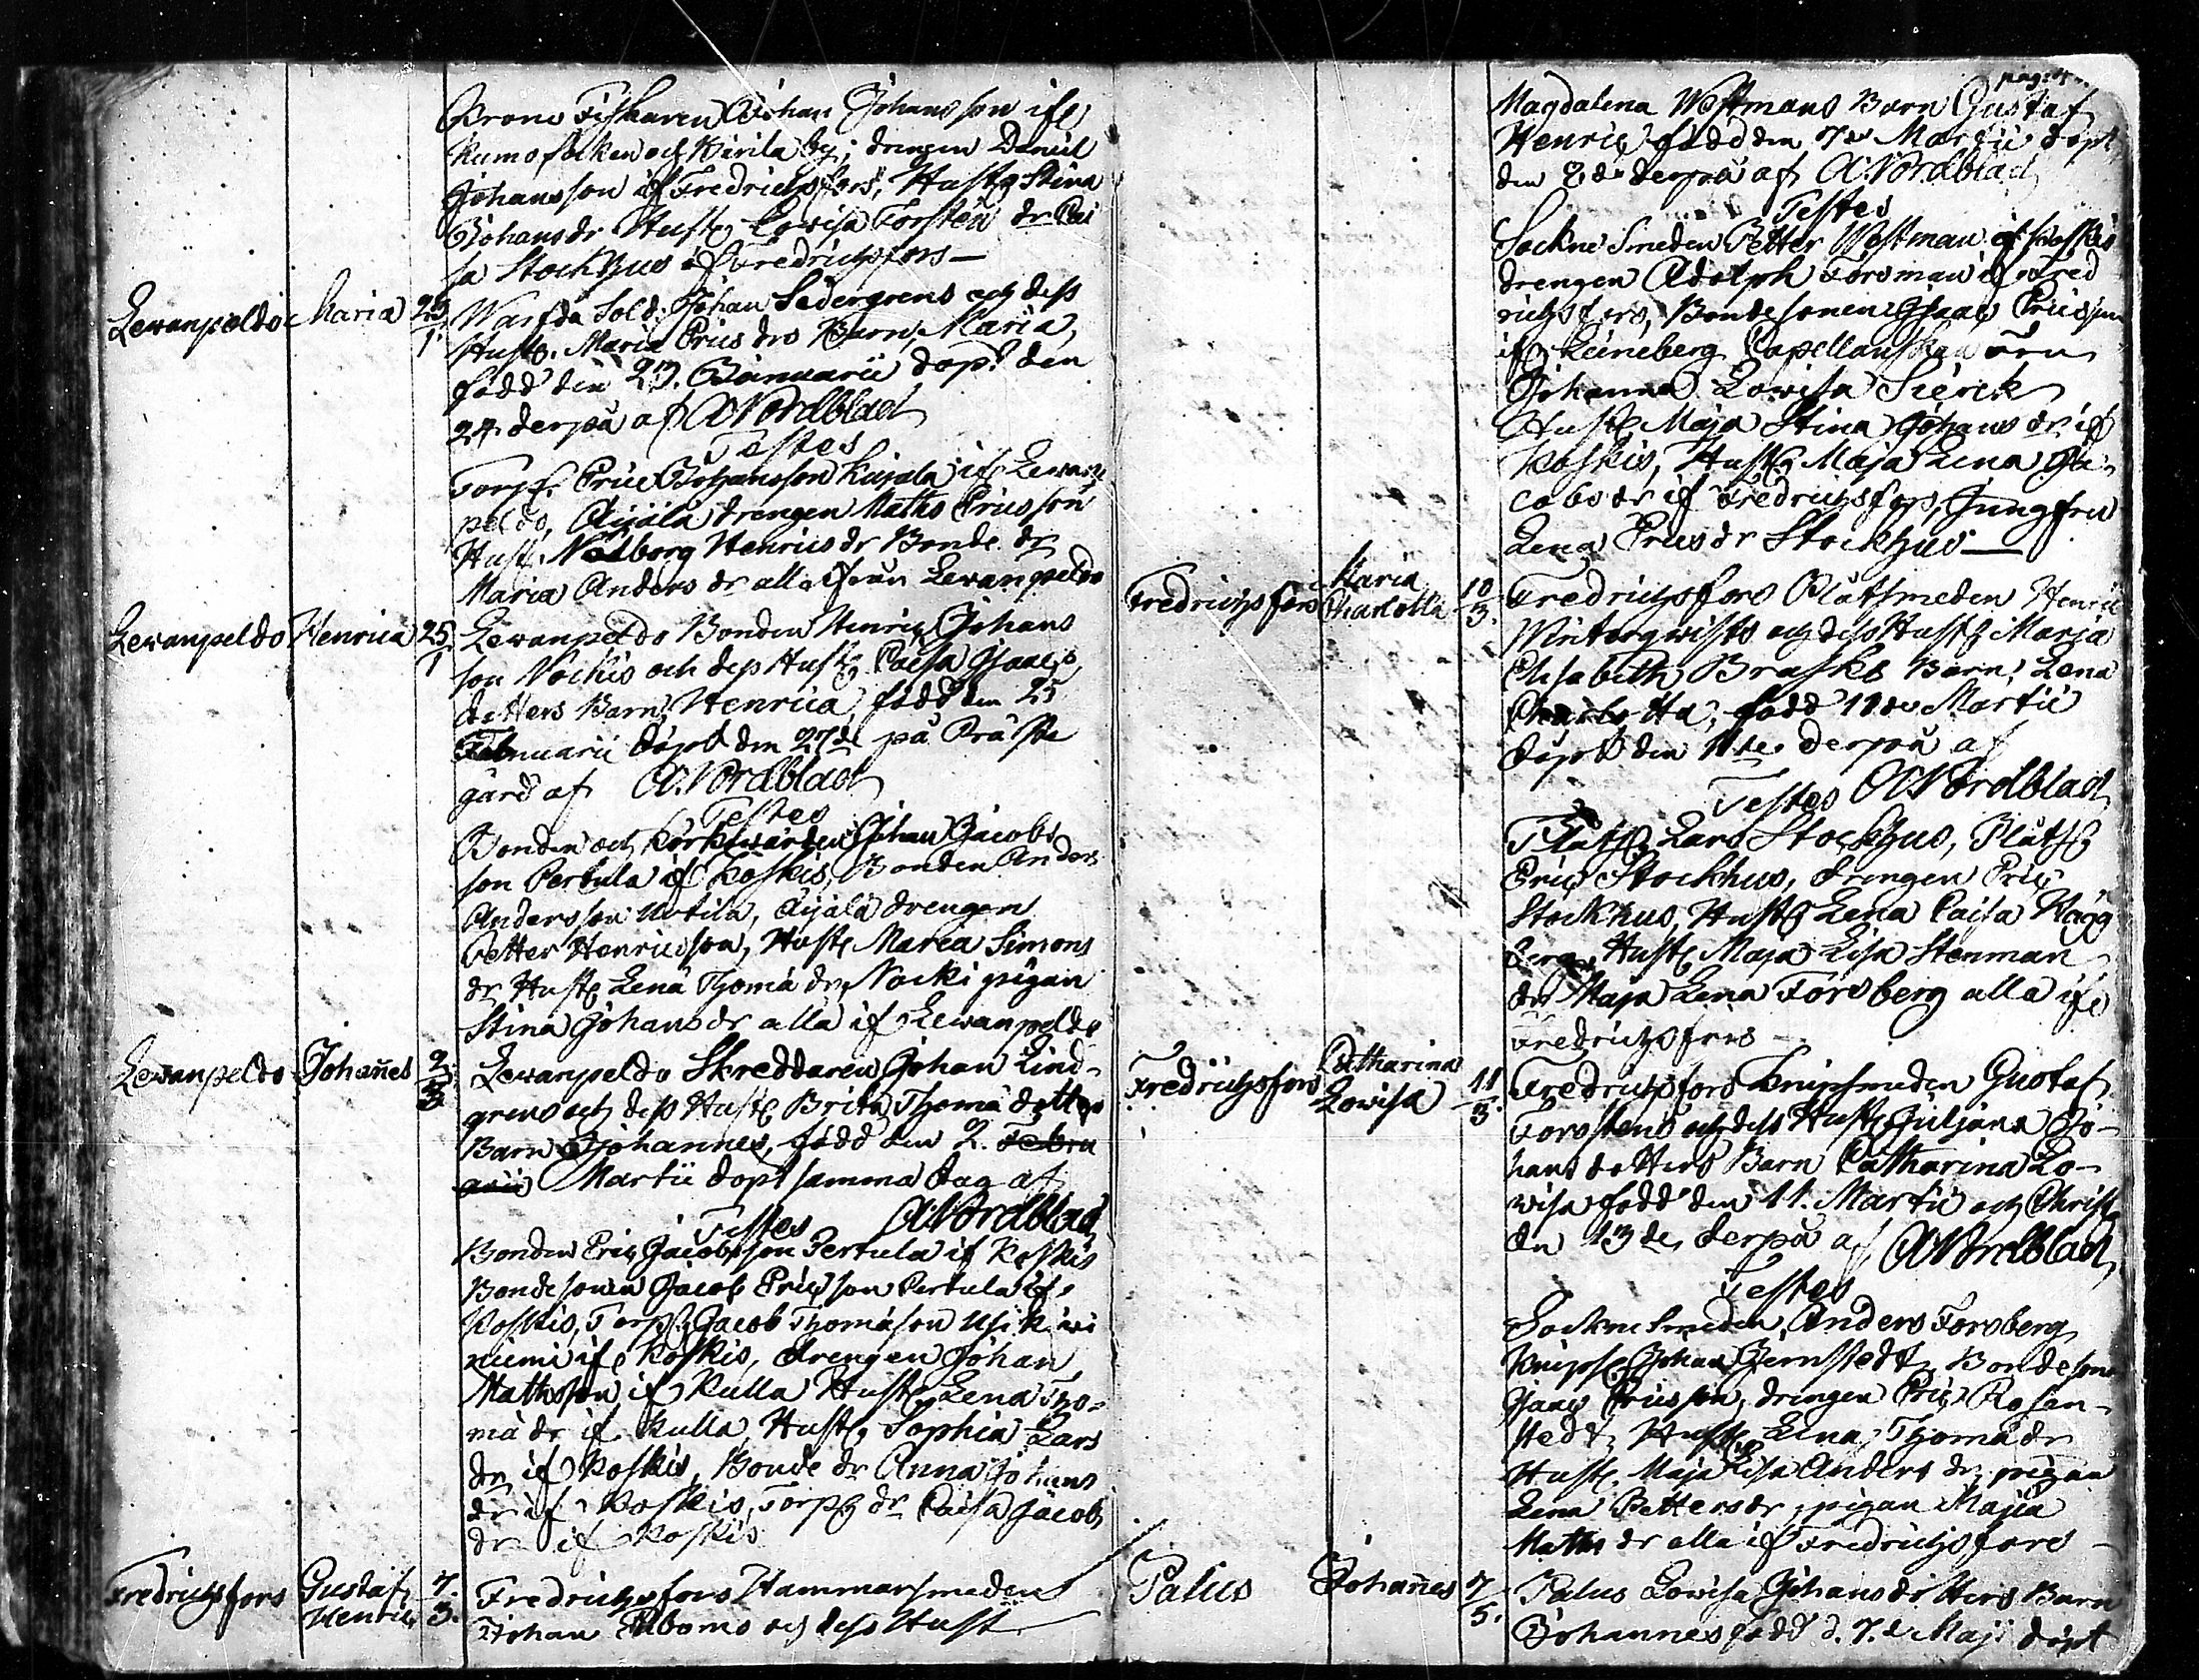 Crono Fiskaren Johan Johansson if
Kumo socken och Kärila by; drengen Daniel
Johansson if Fredrichsfors, Hust. Stina
Johansdr Hust. Lovisa Forsten dr Cai
sa Stockhus if Fredrichsfors —
Levanpeldo Maria 23/1. Warfda Sold. Johan Sedergrens och dess
Hust. Maria Erics drs Barn, Maria,
född den 23. Januarii döpt den
24 derpå af A: Nordblad
Testes
Torp. Eric Johansson Kujala if Levan
peldo, Äijälä drengen Maths Ericsson
Hust. Walborg Henrics dr Bonde dr
Maria Anders dr alla ifrån Levanpeldo
Levanpeldo Henrica 25/1 Levanpeldo Bonden Henric Johans
son Nockis och dess Hust. Caisa Isaacs
dotters Barn, Henrica, född den 25
Februarii döpt den 27de på Präste
gård af A. Nordblad
Testes
Bonden och Körkwärden Johan Jacobs
son Pertula if Koskis, Bonden Anders
Andersson Uotila, Äijälä drengen
Petter Henricsson, Hust. Maria Simons
dr Hust. Lena Thomä dr, Nocki pigan
Stina Johans dr alla if Levanpeldo
Levanpeldo Johañes 2/3. Levanpeldo Skreddaren Johan Lind-
grens och dess Hust. Brita Thomä dotters
Barn Johannes, född den 2. Febru
arii Martii döpt samma dag af
Testes A: Nordblad
Bonden Eric Jacobsson Pertula if Koskis
Bondesonen Jacob Ericsson Pertula if
Koskis, Torp. Jacob Thomäson
niemi if Koskis, drengen Johan
Mathsson if Kulla Hust. Lena Tho-
mä dr if Kulla, Hust. Sophia Lars
dr if Koskis, Bonde dr Anna Johans
dr if Koskis, Torp. dr Caisa Jacobs
dr if Koskis
Fredrichsfors Gustaf Henric 7./3. Fredrichsfors Hammarsmeden
Johan Ekboms och dess Hust
pag: 4
Magdalena Westmans Barn Gustaf
Henric född den 7de Martii döpt
den 8de derpå af A. Nordblad
Testes
Sockne Smeden Petter Westman if Koskis
drengen Adolph Forsman if Fred
richsfors, Bondesonen Isaac Ericsson
if Leineberg Capellanskan
Johanna Lowisa Sierck
Hust. Maja Stina Johans dr if
Koskis, Hust. Maja Lena Ja-
cobs dr if Fredrichsfors, Jungfru
Lena Erics dr Stockhus —
Fredrichsfors Maria Charlotta 10/3. Fredrichsfors Plåtsmeden Henric
Winterqwists och dess Hust. Maria
Elisabeth Brasks Barn, Lena
Charlotta, född 10de Martii
döpt den 11te derpå af
Testes A: Nordblad
Plåts. Lars Stockhus, Plåts.
Eric Stockhus, drengen Eric
Stockhus, Hust. Lena Caisa Hägg
berg, Hust. Maja Lisa Stenman
dr Maja Lena Forsberg alla if
Fredrichsfors —
Fredrichsfors Catharina Lowisa 11/3. Fredrichsfors Knipsmeden Gustaf
Forstens och dess Hust. Juliana Jo-
hans dotters Barn Catharina Lo-
wisa född den 11. Martii och Christ.
den 13de derpå af A: Nordblad
Testes
Sockne Smeden, Anders Forsberg
Knips. Johan Jernstedt, Bondeson
Isaac Ericsson, drengen Eric Rosen-
stedt, Hust. Lena Thomä dr
Hust. Maja Lisa Anders dr, pigan
Lena Petters dr, pigan Maja
Maths dr alla if Fredrichsfors —
Palus Johañes 7/5. Palus Lowisa Johans dotters Barn
Johannes född d. 7.de Maji döpt